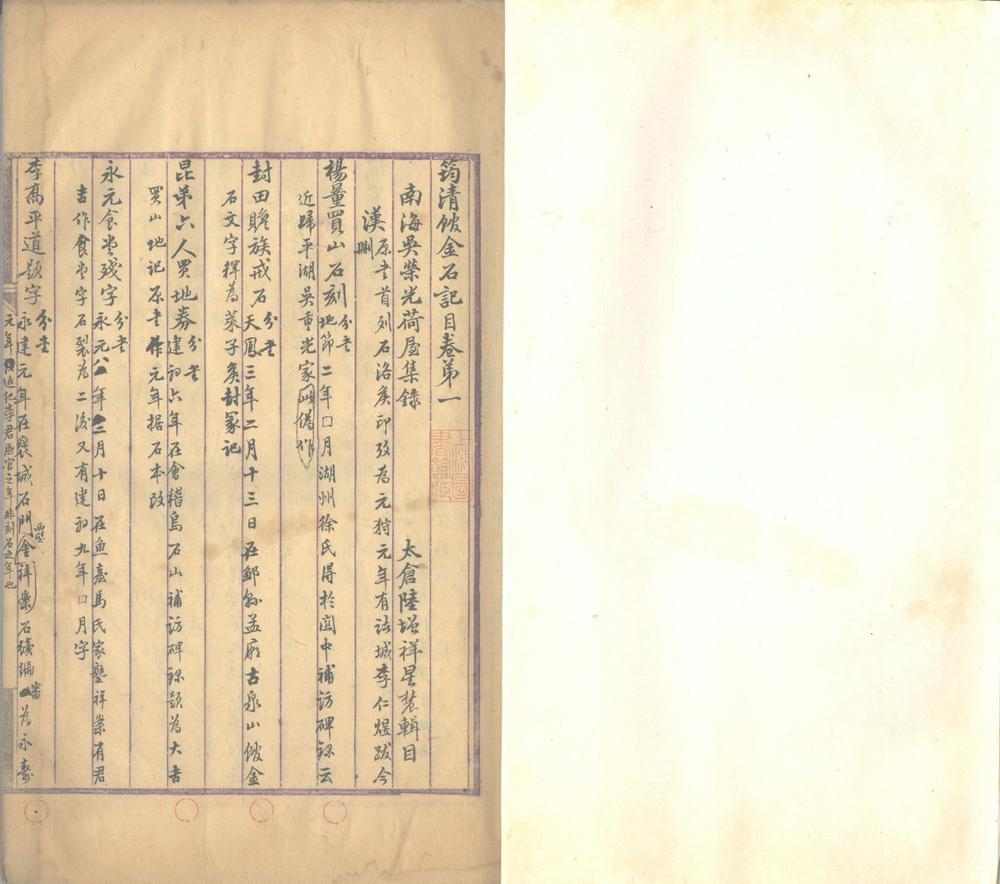 筠清館金石記目卷第一
南海吳榮光荷屋集錄
太倉陸增祥星農輯目
漢
原書首列石洛矦印攷為元狩元年有諸城李仁煜跋今
刪
楊量買山石刻 分書
地節二年囗月湖州徐氏得於閩中補訪碑錄云
近歸平湖吳重光家此偽作
封田贍族戒石 分書
天鳳三年二月十三日在鄒縣孟廟古泉山館金
石文字釋為萊子矦封冢記
昆弟六人買地券 分書
建初六年在會稽烏石山補訪碑錄題為大吉
買山地記原書作元年據石本改
永元食堂殘字 分書
永元八年二月十日在魚臺馬氏家塾祥案有君
吉作食堂字石裂為二後又有建初九年囗月字
李禹平道題字 分書
永建元年在襃城石門西壁金祥案石續編審為永壽
元年 近仁李君歷官之年非刻石之年也